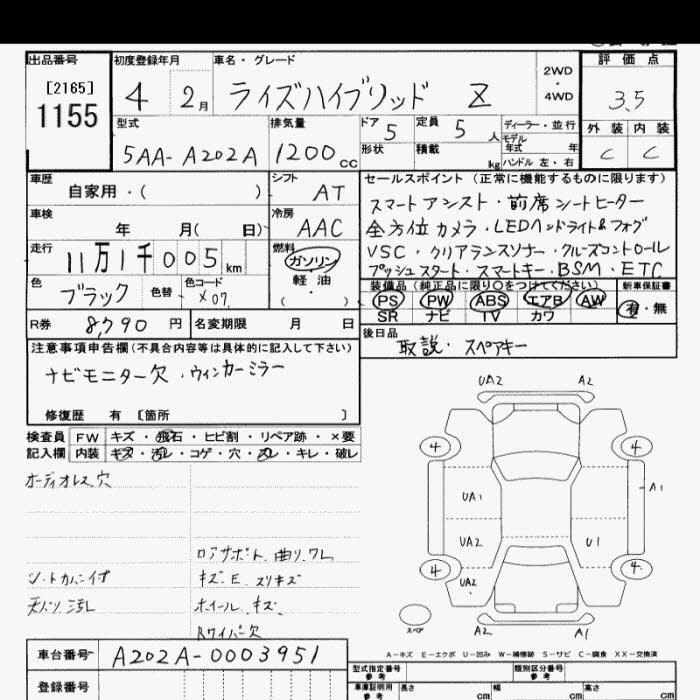 出品番号 初度登録年月 車名・グレード 評価点
[2165]
1155
4 2月 ライズハイブリッド Z 2WD・4WD 3.5
型式 排気量 ドア 5 定員 5人 ディーラー・並行 外装 内装
5AA-A202A 1200cc 形状 積載 kg モデル年式 年 ハンドル 左・右 C C
車歴 自家用・( )
シフト AT
車検 年 月( 日)
冷房 AAC
走行 11万1千005km
燃料 ガソリン・軽油・( )
色 ブラック 色替 色コード X07
R券 8,790円 名変期限 月 日
セールスポイント (正常に機能するものに限ります)
スマートアシスト・前席シートヒーター
全方位カメラ・LEDヘッドライト&フォグ
VSC・クリアランスソナー・クルーズコントロール
プッシュスタート・スマートキー・BSM・ETC
装備品(純正品に限り○をつけてください) 新車保証書
PS PW ABS エアB AW 有・無
SR ナビ TV カワ
後日品 取説・スペアキー
注意事項申告欄(不具合内容等は具体的に記入して下さい)
ナビモニター欠・ウィンカーミラー
修復歴 有 〔箇所 〕
検査員記入欄
FW キズ・飛石・ヒビ割・リペア跡・×要
内装 キズ・汚レ・コゲ・穴・スレ・キレ・破レ
オーディオレス、穴
ロアサポート、曲り、ワレ
シートカバー付 キズ、E、スリキズ
天バリ汚レ ホイール、キズ
Rワイパー欠
UA2 A2
4 4
UA1 A1
UA2 U1
4 4
UA2
スペア A2 A1
A-キズ E-エクボ U-凹み W-補修跡 S-サビ C-腐食 XX-交換済
車台番号 A202A-0003951
登録番号
型式指定番号 参考 類別区分番号 参考
車庫証明用 参考 長さ cm 幅 cm 高さ cm